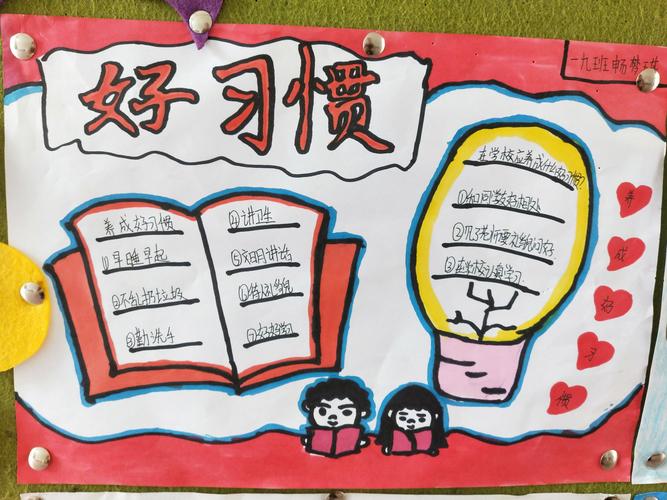 好习惯
一九班畅梦琪
养成好习惯
①早睡早起
②不乱扔垃圾
③勤洗手
④讲卫生
⑤文明讲话
⑦好好学习
在学校应养成什么好习惯?
①和同学好好相处
②见了老师要礼貌问好
③在学校认真学习.
养
成
好
习
惯